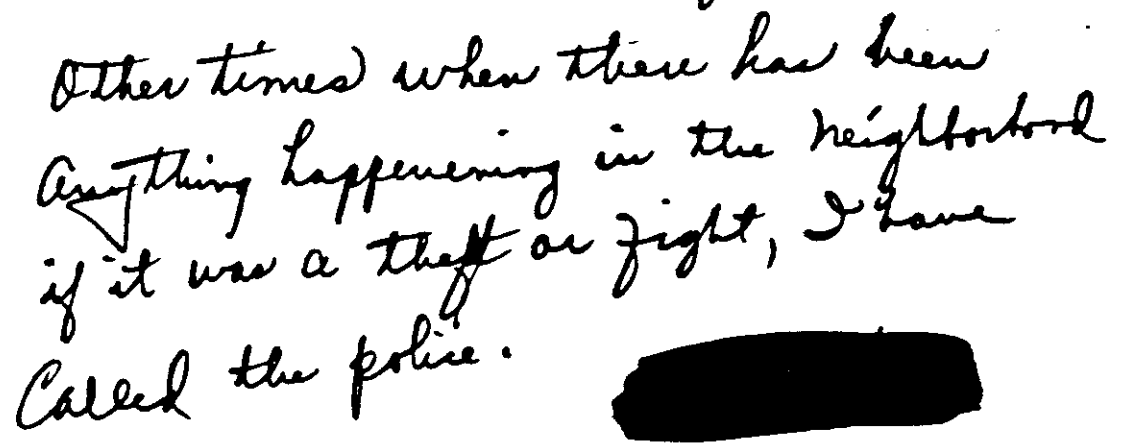 Other times when there has been
Anything happenening in the Neighborhood
if it was a theft or fight, I have
Called the police.